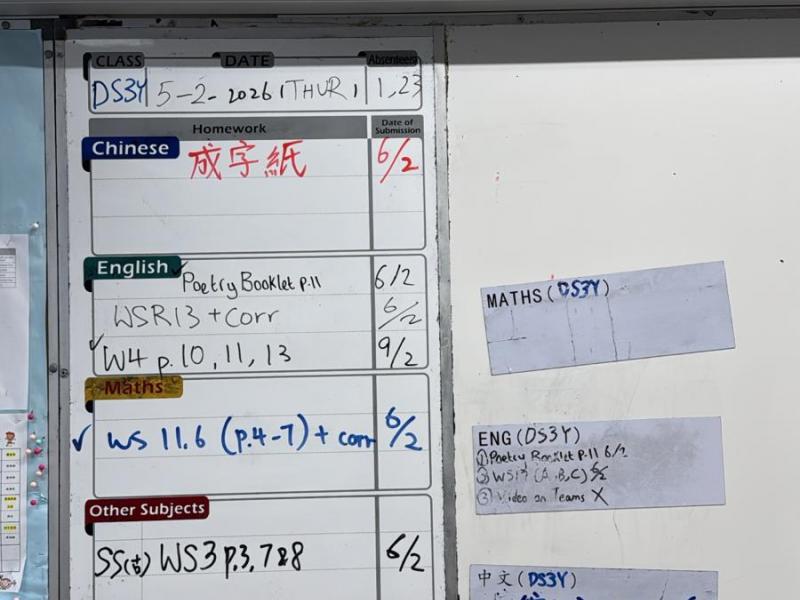 CLASS DATE Absentees
DS3Y 5-2-2026 (THUR) 1,23
Homework Date of Submission
Chinese 成字紙 6/2
English
Poetry Booklet p.11 6/2
WSR13 + corr 6/2
W4 p.10, 11, 13 9/2
Maths
WS 11.6 (p.4-7) + corr 6/2
Other Subjects
SS(古) WS3 p.3, 7&8 6/2
MATHS (DS3Y)
ENG (DS3Y)
① Poetry Booklet p.11 6/2
② WS13 (A,B,C) 6/2
③ Video on Teams X
中文 (DS3Y)